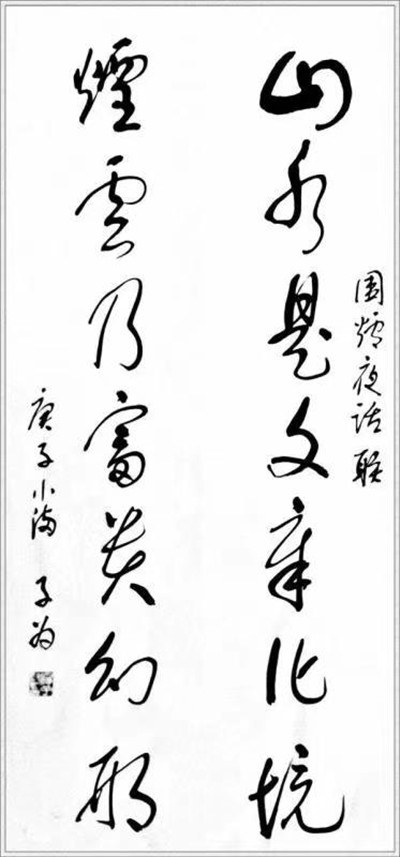 圍炉夜话联
山水是文章化境
煙雲乃富貴幻形
庚子小满 子为